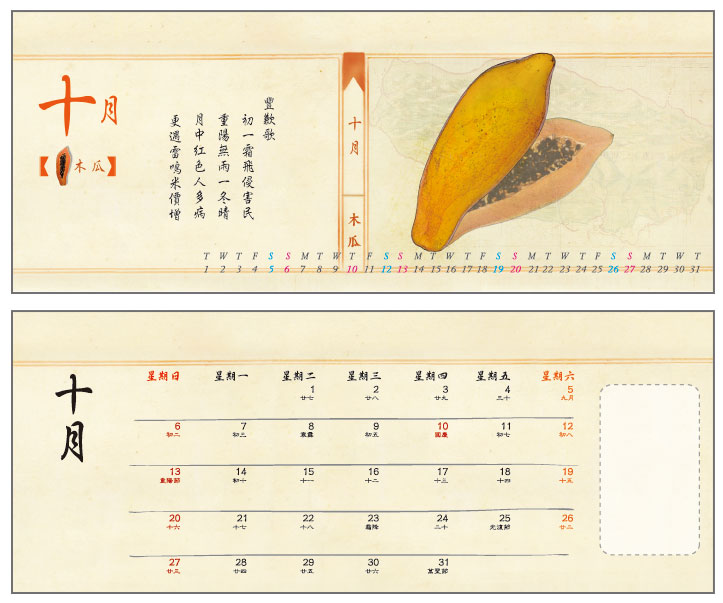 十月
【木瓜】
豐歉歌
初一霜飛侵害民
重陽無雨一冬晴
月中紅色人多病
更遇雷鳴米價增
十月
木瓜
T W T F S S M T W T F S S M T W T F S S M T W T F S S M T W T
1 2 3 4 5 6 7 8 9 10 11 12 13 14 15 16 17 18 19 20 21 22 23 24 25 26 27 28 29 30 31
十月
星期日 星期一 星期二 星期三 星期四 星期五 星期六
1 2 3 4 5
廿七 廿八 廿九 三十 九月
6 7 8 9 10 11 12
初二 初三 寒露 初五 國慶 初七 初八
13 14 15 16 17 18 19
重陽節 初十 十一 十二 十三 十四 十五
20 21 22 23 24 25 26
十六 十七 十八 霜降 二十 光復節 廿二
27 28 29 30 31
廿三 廿四 廿五 廿六 萬聖節